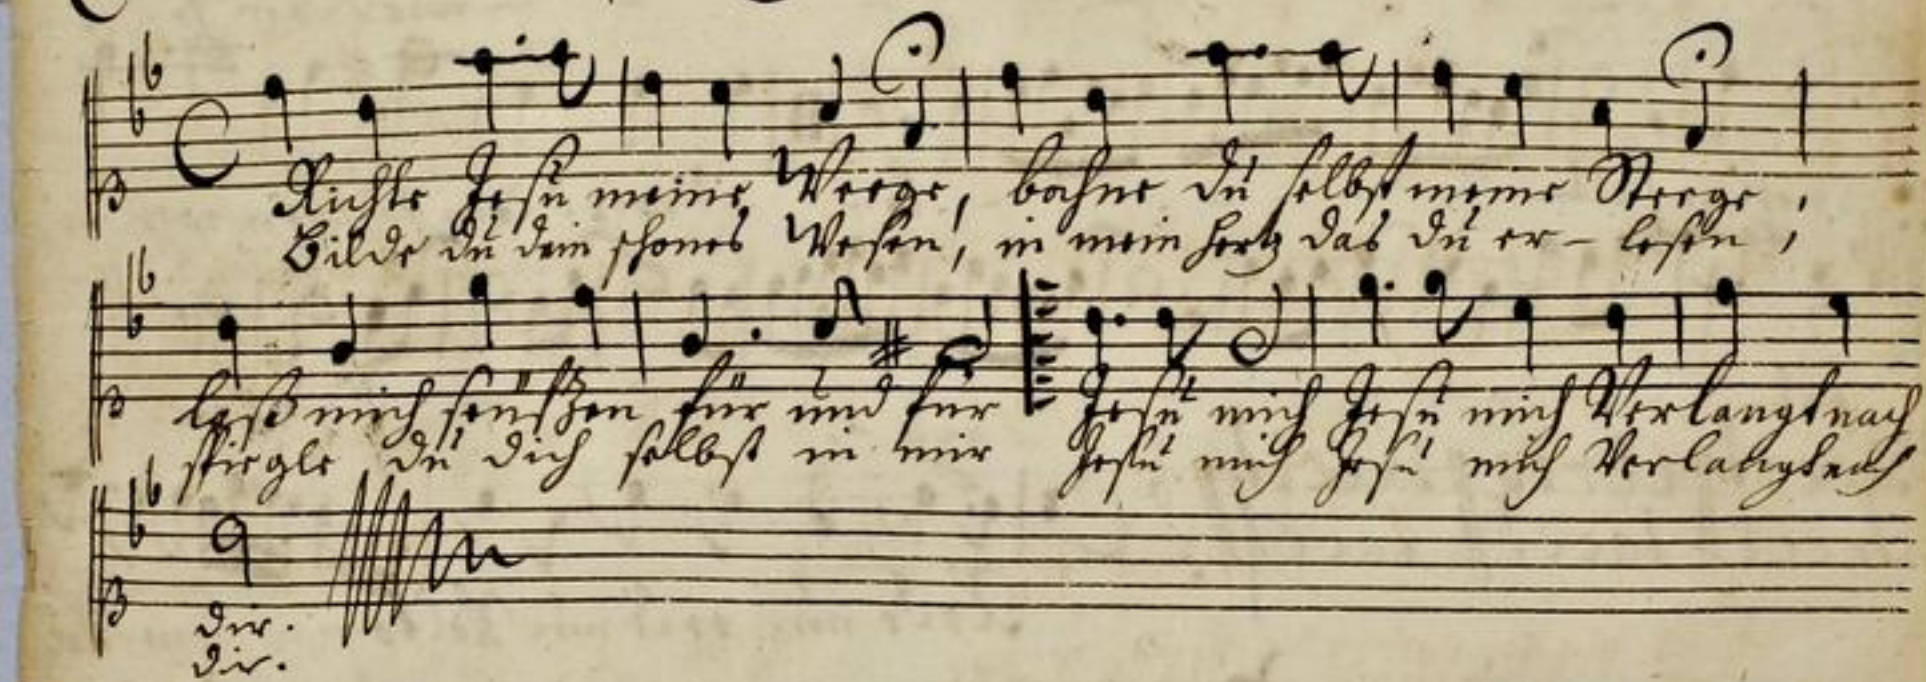 Richte Jesu meine Weege, bahne du selbst meine Steege,
Bilde du dein schönes Wesen, in mein hertz das du er-lesen,
laß mich seüfzen für und für Jesu mich Jesu mich Verlangt nach
spiegle du dich selbst in mir Jesu mich Jesu mich Verlangt nach
dir.
dir.